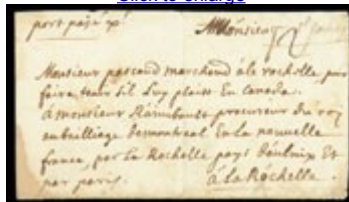 Click to enlarge
port payé
Monsieur
Monsieur pascaud marchand à la rochelle pour
faire tenir sil Luy plaist En Canada.
A monsieur Raimbault procureur du roy
au bailliage de montreal En la nouvelle
france, par La Rochelle pays daulnix Et
par paris. à La Rochelle.